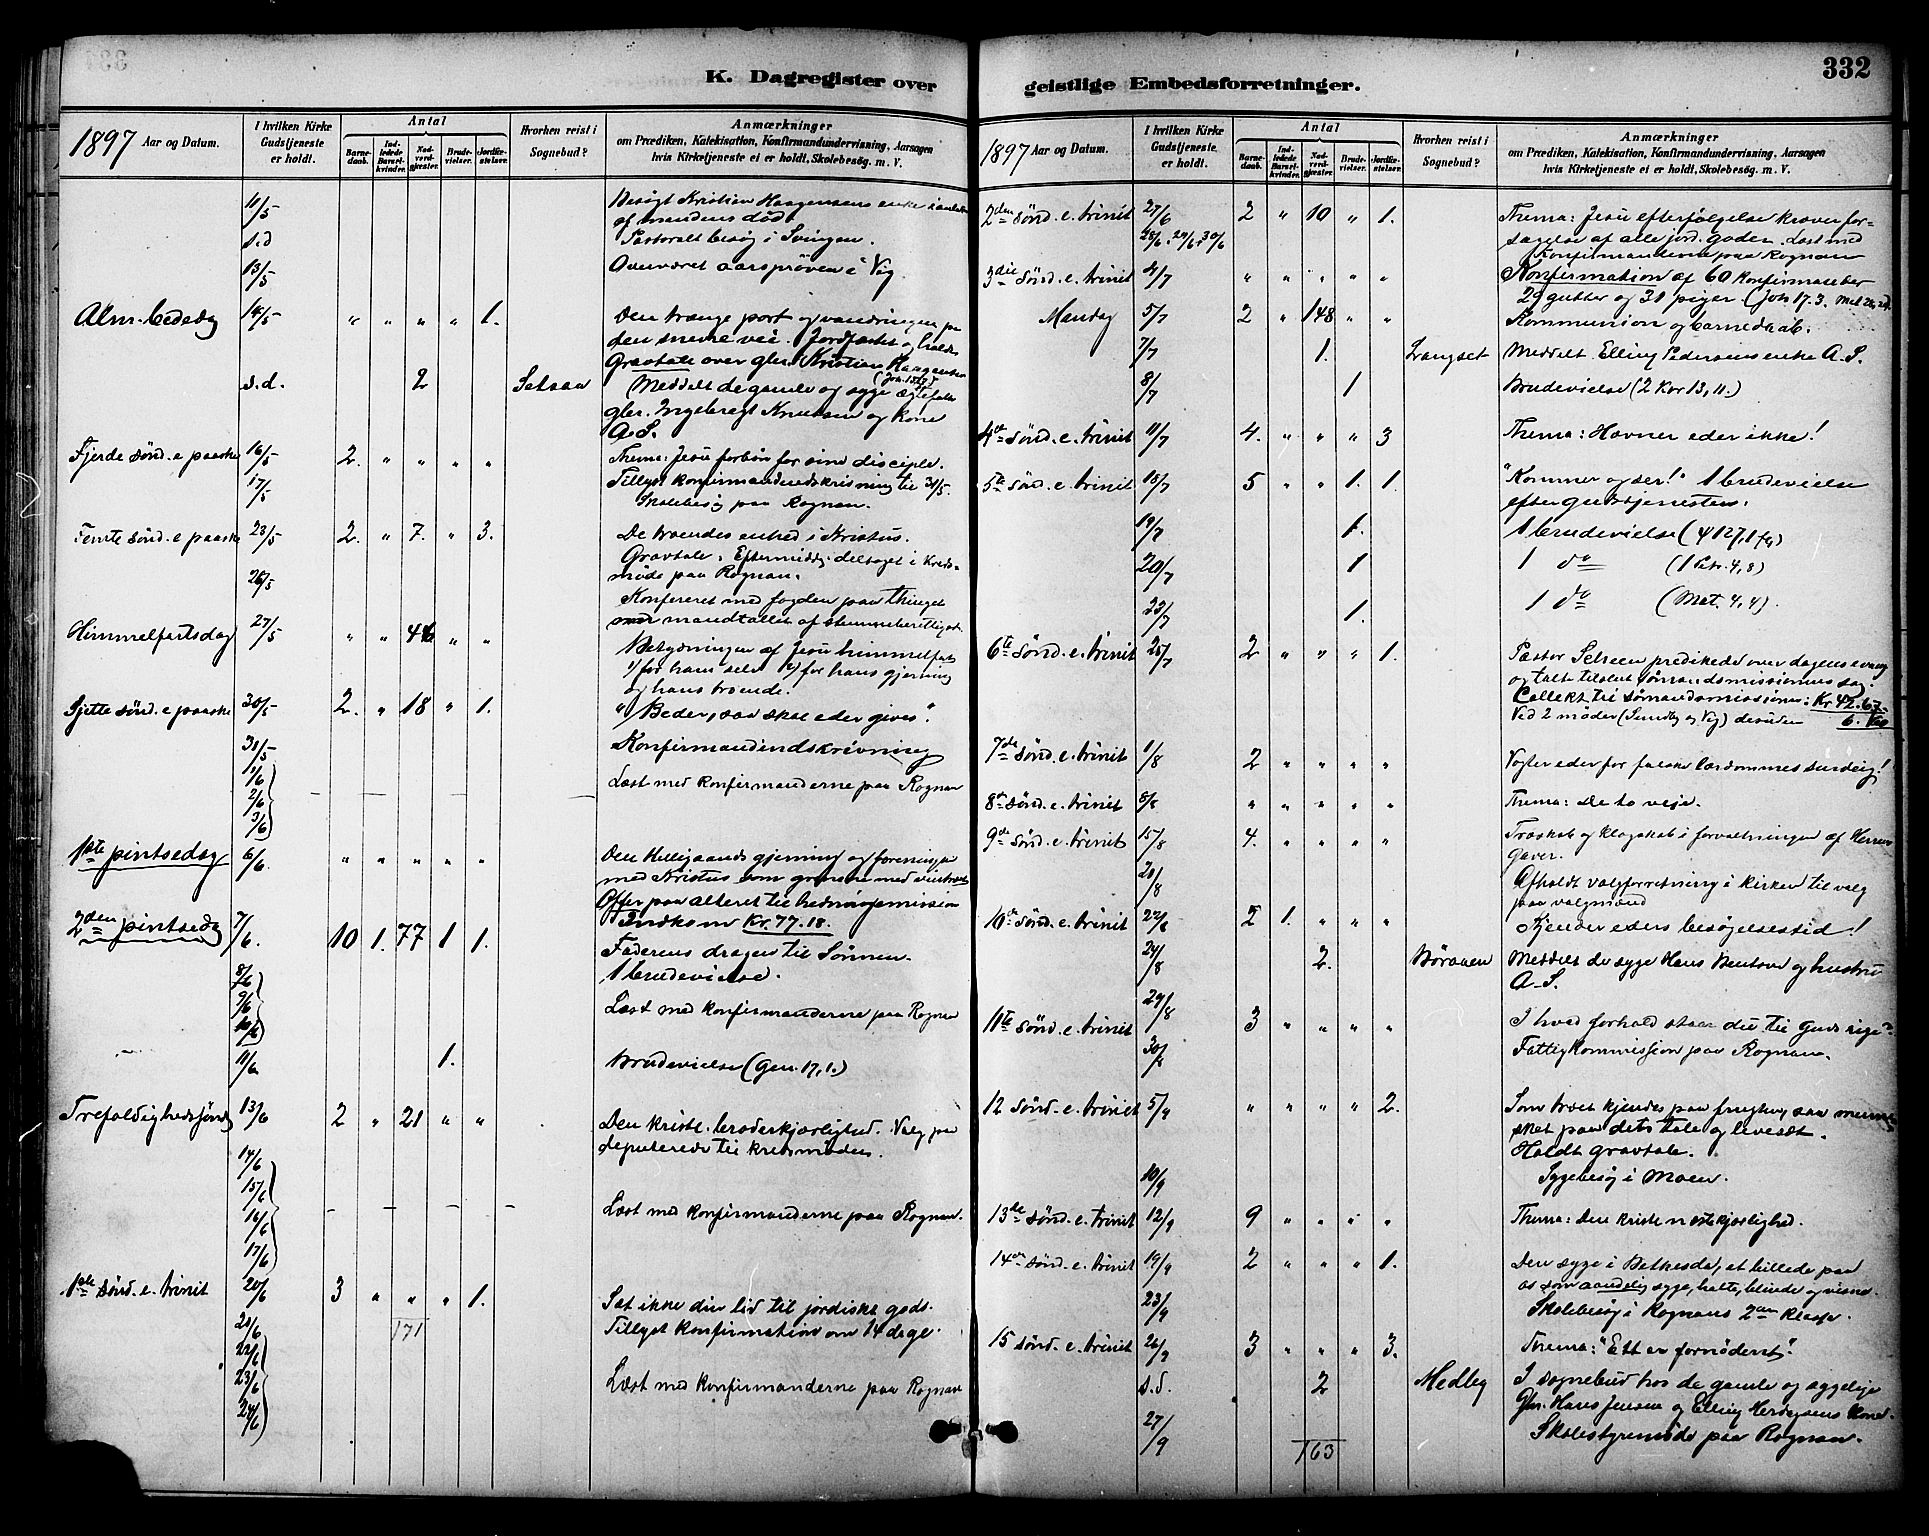 K. Dagregister over
1897 Aar og Datum.
I hvilken Kirke Gudstjeneste er holdt.
Antal
Barnedaab.
Indledede Barselkvinder.
Nadverdgjæster.
Brudevielser.
Jordfæstelser.
Hvorhen reist i Sognebud?
Anmærkninger
om Prædiken, Katekisation, Konfirmandundervisning, Aarsagen
hvis Kirketjeneste ei er holdt, Skolebesøg m. V.
11/5 Besøgt Kristian Haagensens enke i anledn.
af mandens død.
s.d Pastoralt besøg i Svingen.
13/5 Overværet aarsprøven i Vig.
Alm. bededag 14/5 " " " " 1. Den trange port og vandringen paa
den smale vei. Jordfæstet og holdt
Gravtale over gbr. Kristian Haagensen
s.d. 2 Setsaa Meddelt de gamle og syge ægtefolk
gbr. Ingebregt Knutsen og kone
A. S.
Fjerde sønd. e paaske 16/5 2. " " " " Thema: Jesu forbøn for sine disciple.
Tillyst konfirmandindskrivning til 31/5.
17/5 Skolebesøg paa Rognan.
Femte sønd. e paaske 23/5 2. " 7. " 3. De troendes enhed i Kristus.
Gravtale. Eftermiddag deltaget i Kreds-
møde paa Rognan.
26/5 Konfereret med fogden paa thinget
mandtallet af stemmeberettigede.
Himmelfartsdag 27/5 " " 46 " " Betydningen af Jesu himmelfart
1) for ham selv 2) for hans gjerning
og hans troende.
Sjette sønd. e paaske 30/5 2. " 18 " 1. "Beder, saa skal eder gives".
31/5 Konfirmandindskrivning
1/6 2/6 3/6 Læst med konfirmanderne paa Rognan
1ste pintsedag 6/6 " " " " " Den Helligaands gjerning og foreningen
med Kristus som grenene med vintræet
Offer paa alteret til hedningemission
Indkom Kr. 77.18.
2den pintsedag 7/6. 10 1. 77 1 1. Faderens dragen til Sønnen.
1 brudevielse.
8/6 9/6 10/6 Læst med konfirmanderne paa Rognan
11/6 1. Brudevielse (Gen. 17,1.)
Trefoldighedssønd. 13/6 2 " 21 " " Den kristl. broderkjærlighed. Valg paa
deputerede til kredsmøden.
14/6 15/6 16/6 17/6 Læst med konfirmanderne paa Rognan.
1ste sønd. e. trinit 20/6 3 " " " 1. Sæt ikke din lid til jordiske gods.
Tillyst konfirmation om 14 dage.
171
21/6 22/6 23/6 24/6 Læst med konfirmanderne paa Rognan
geistlige Embedsforretninger.
332
1897 Aar og Datum.
I hvilken Kirke Gudstjeneste er holdt.
Antal
Barnedaab.
Indledede Barselkvinder.
Nadverdgjæster.
Brudevielser.
Jordfæstelser.
Hvorhen reist i Sognebud?
Anmærkninger
om Prædiken, Katekisation, Konfirmandundervisning, Aarsagen
hvis Kirketjeneste ei er holdt, Skolebesøg m. V.
2den sønd. e. trinit 27/6 2 " 10 " 1. Thema: Jesu efterfølgelse kræver for-
sagelse af alle jord. goder. Læst med
28/6, 29/6, 30/6 Konfirmanderne paa Rognan
3die sønd. e. trinit 4/7 " " " " " Konfirmation af 60 konfirmander
29 gutter og 31 piger (Joh 17.3.
Mandag 5/7 2 " 148 " " Kommunion og barnedaab.
7/7 1. Langset Meddelt Elling Pedersens enke A. S.
8/7 1 Brudevielse (2 Kor 13, 11.)
4de sønd. e. trinit 11/7 4. " " " 3 Thema: Hævner eder ikke!
5te sønd. e. trinit 18/7 5 " " 1. 1. "Kommer og ser!" 1 brudevielse
efter gudstjenesten.
19/7 1. 1 brudevielse (
20/7 1 1 do (1 Petr. 4, 8)
23/7 1. 1 do (Mat. 4, 4).
6te sønd. e. trinit 25/7 2 " " " 1. Pastor prædikede over dagens evang
og talte tilslut sømandsmissionens sag.
Collekt til sømandsmissionen: Kr 42.67.
Ved 2 møder (Sundby og Vig) desuden
7de sønd. e. trinit 1/8 2 " " " " Vogter eder for falske lærdommes surdeig!
8de sønd. e. trinit 8/8 " " " " " Thema: De to veje.
9de sønd. e. trinit 15/8 4. " " " " Troskab og klogskab i forvaltningen af Herrens
Gaver.
20/8 Afholdt valgforretning i kirken til valg
paa valgmænd
10de sønd. e. trinit 22/8 2 1. " " " Kjender eders besøgelsestid!
24/8 2. Meddelt de syge Hans Bentsen og hustru
A. S.
11te sønd. e. trinit 29/8 3 " " " " I hvad forhold staar du til Guds rige?
30/8 Fattigkommission paa Rognan.
12 sønd. e. trinit 5/9 " " " " 2. Som træet kjendes paa frugten, saa menne
sket paa dets tale og levesæt.
Holdt gravtale.
10/9 Sygebesøg i Moen.
13de sønd. e. trinit 12/9 9 " " " " Thema: Den kristne næstekjærlighed.
14de sønd. e. trinit 19/9 2 " " " 1. Den syge i Bethesda, et billede paa
os som aandelig syge, halte, blinde og visne.
23/9 Skolebesøg i Rognans 2den klasse
15 sønd. e. trinit 26/9 3 " " " 3. Thema: "Ett er fornødent".
s.d. 2 Medby I sognebud hos de gamle og sygelige
Gbr. Hans Jensen og Elling Kone.
27/9 Skolestyremøde paa Rognan.
163